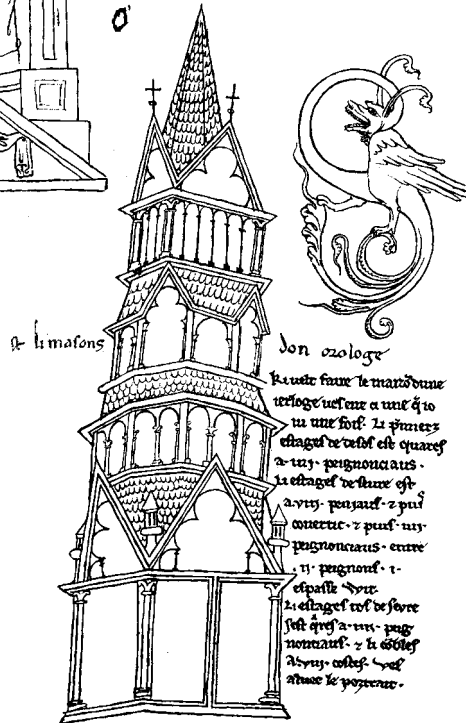 O
& li masons
don orologe
ki velt faire le maizō dune
ierloge ves ent ci une q̄ io
vi une fois. Li prumerz
estages de desos est quares
a .iiii. peignonciaus.
Li estages deseure est
a .viii. peniaus. & puis
covertic. & puis .iiii.
peignonciaus. entre
.ii. peignons .i.
espasse wit.
Li estages tos deseure
sest q̄res a .iiii. peig
nonciaus. & li cōbles
a .viii. costes. vel
aluec le portrait.